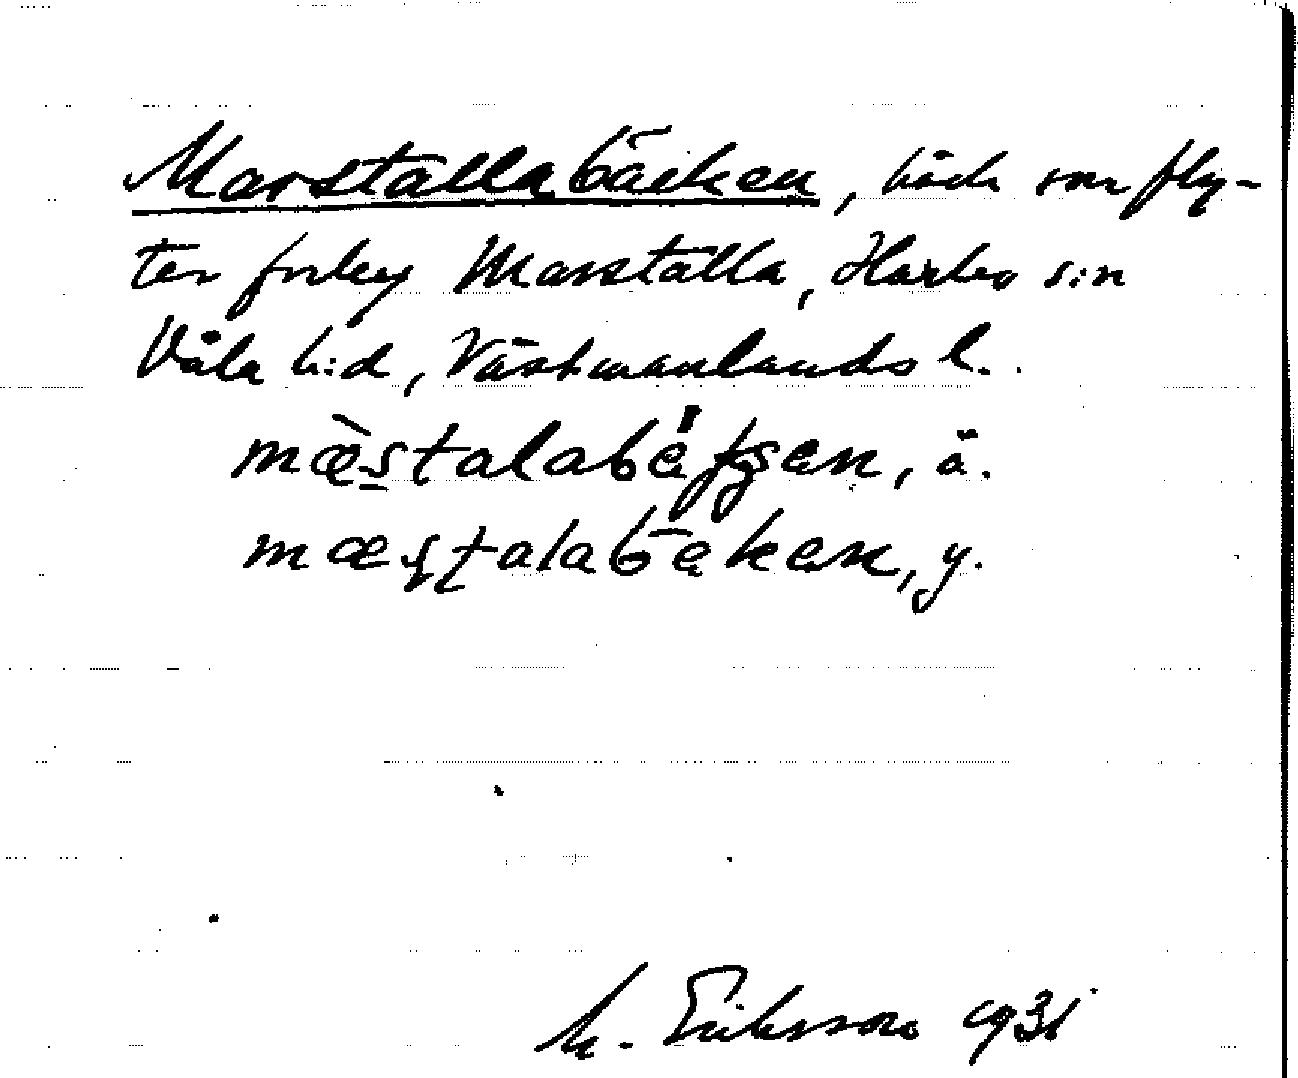 Marstallabäcken, bäck som fly-
ter förbi Marstalla, Harbo s:n
Våla h:d, Västmanlands l.
mæstalabe̢ken, ä.
mæstalabe̢ken, y.
M. Eriksson 1931